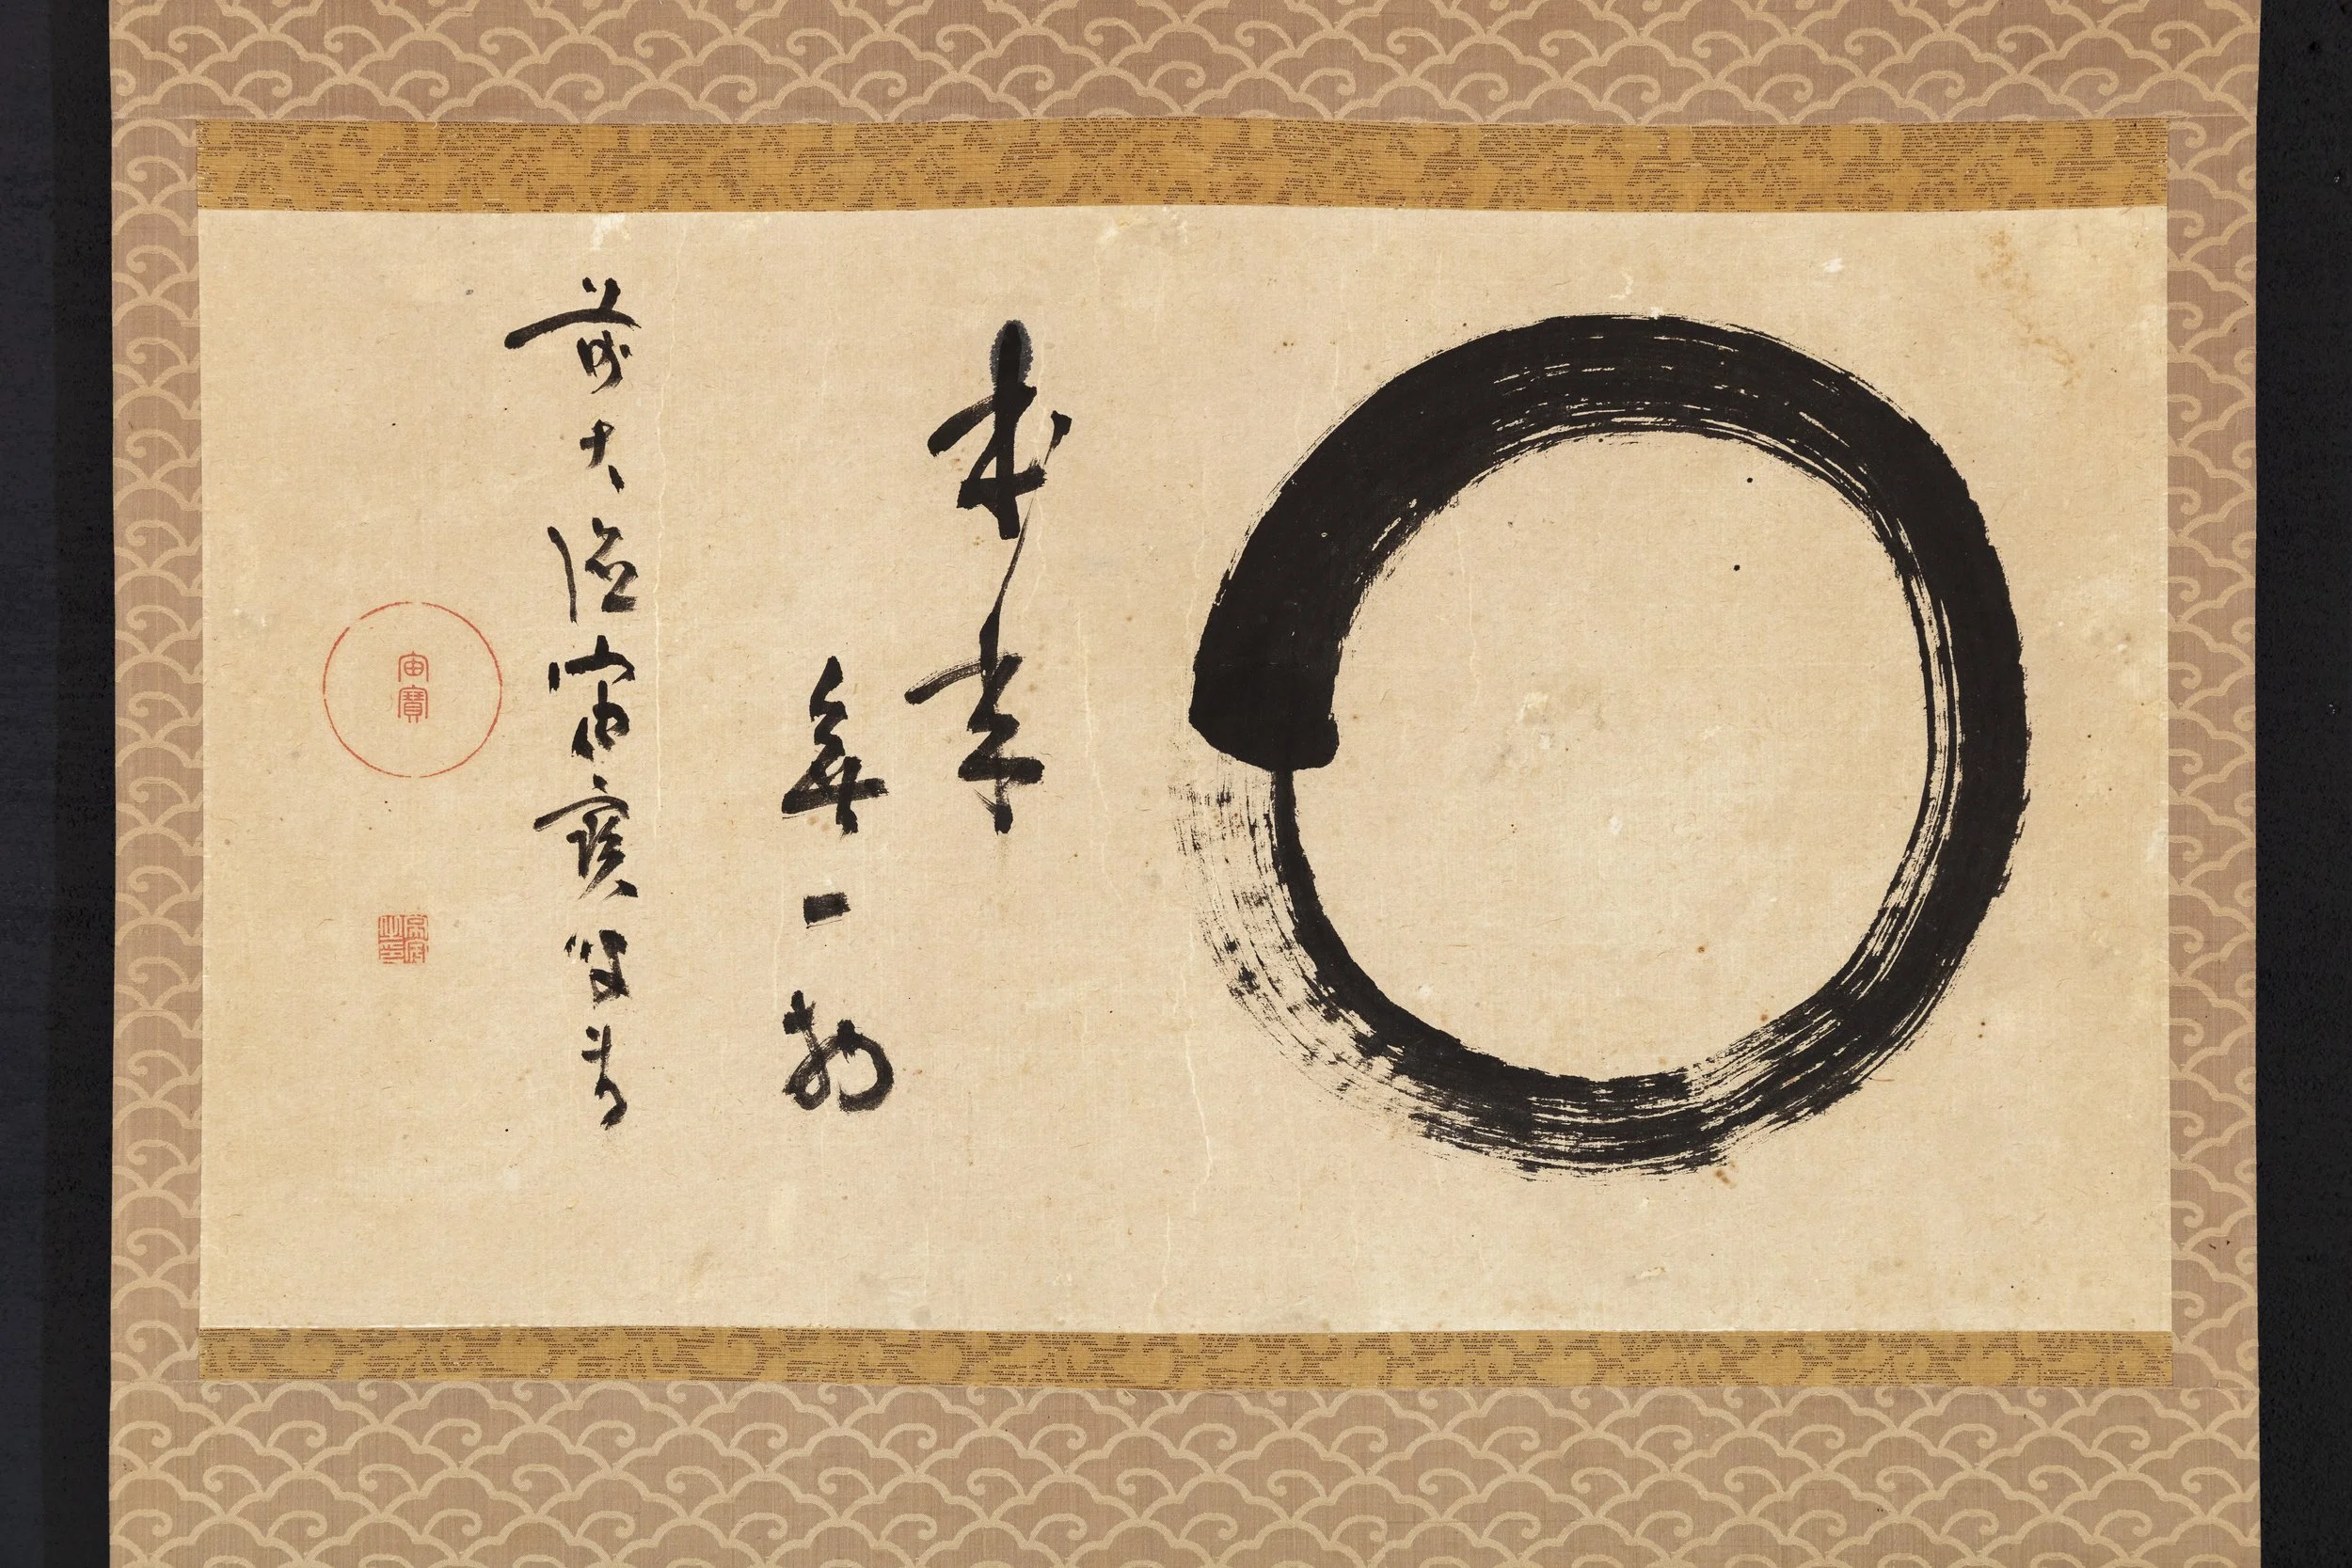 本来
無一物
前大德宙寶叟書
宙寶